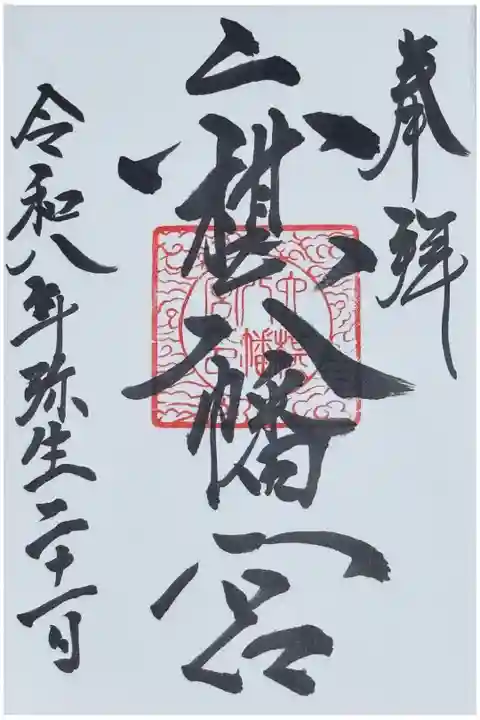 奉拝
六椹八幡宮
令和八年弥生二十一日